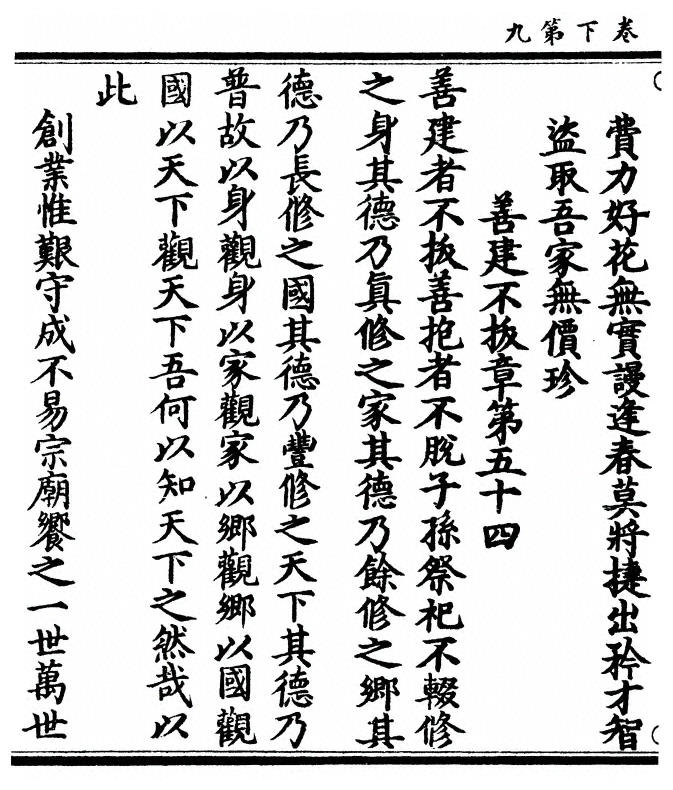 卷下第九
費力好花無實謾逢春莫將捷出矜才智
盜取吾家無價珍
善建不拔章第五十四
善建者不拔善抱者不脫子孫祭祀不輟修
之身其德乃真修之家其德乃餘修之鄉其
德乃長修之國其德乃豐修之天下其德乃
普故以身觀身以家觀家以鄉觀鄉以國觀
國以天下觀天下吾何以知天下之然哉以
此
創業惟艱守成不易宗廟饗之一世萬世